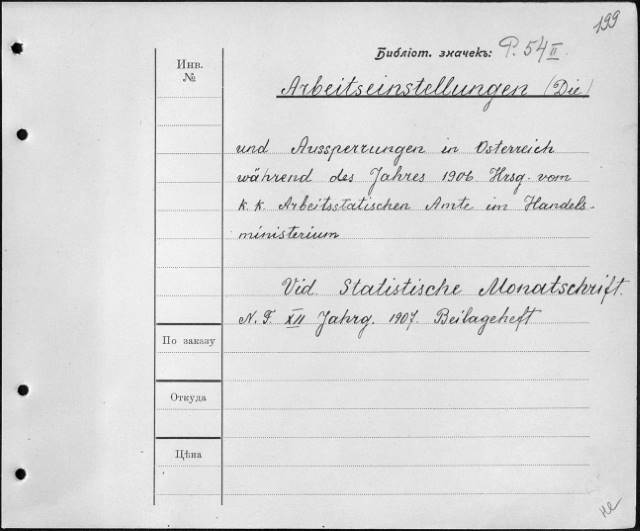 199
Библіот. значекъ: P. 54 II
Инв.
№
Arbeitseinstellungen (Die)
und Aussperrungen in Österreich
während des Jahres 1906. Hrsg. vom
k. k. Arbeitsstatischen Amte im Handels-
ministerium
Vid. Statistische Monatschrift.
N. F. XII Jahrg. 1907. Beilageheft
По заказу
Откуда
Цѣна
не